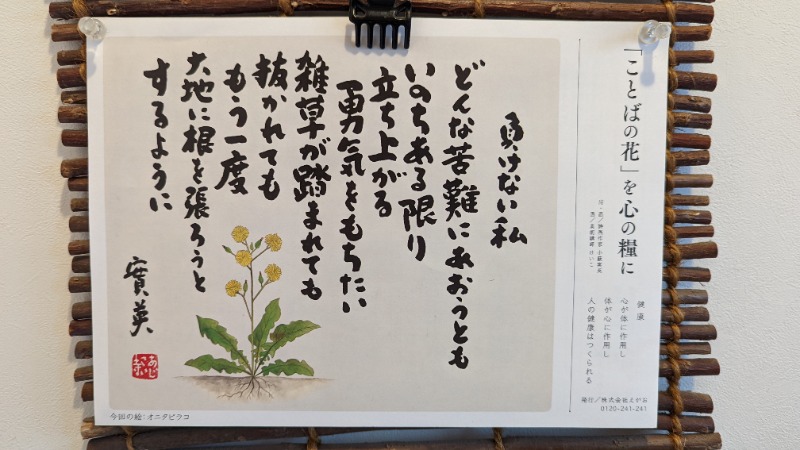 「ことばの花」を心の糧に
健康
心が体に作用し
体が心に作用し
人の健康はつくられる
発行／株式会社えがお
0120-241-241
負けない私
どんな苦難にあおうとも
いのちある限り
立ち上がる
勇気をもちたい
雑草が踏まれても
抜かれても
もう一度
大地に根を張ろうと
するように
實英
今回の絵：オニタビラコ